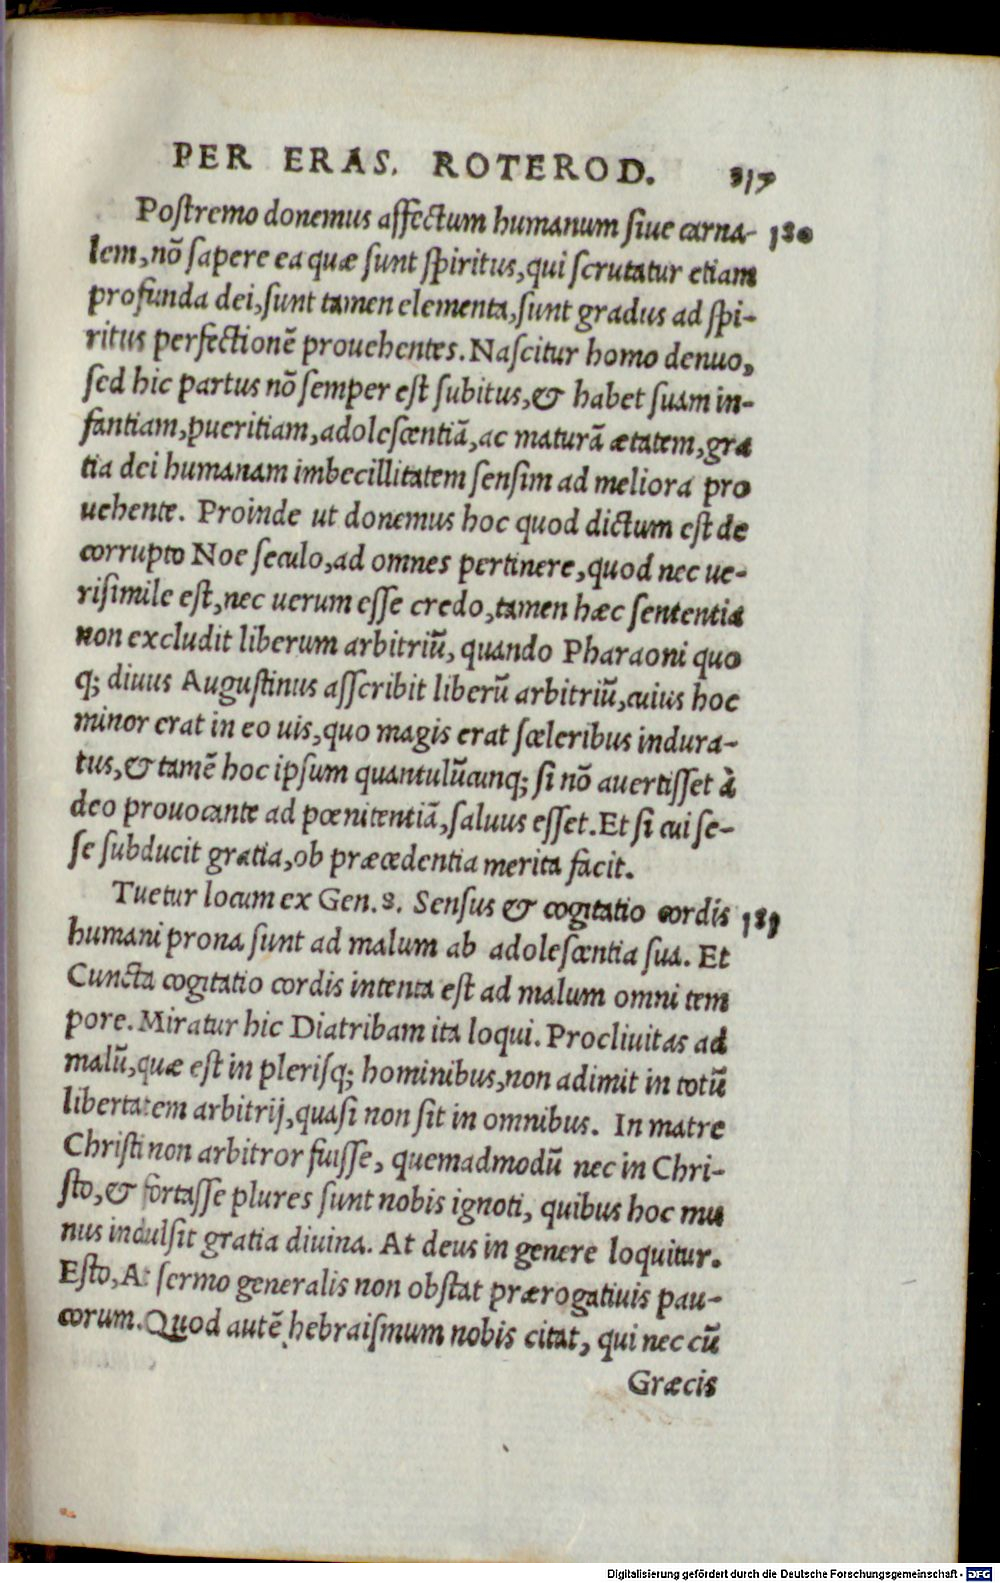 PER ERAS. ROTEROD. 317
Postremo donemus affectum humanum siue carna- 180
lem, nõ sapere ea quæ sunt spiritus, qui scrutatur etiam
profunda dei, sunt tamen elementa, sunt gradus ad spi-
ritus perfectionẽ prouehentes. Nascitur homo denuo,
sed hic partus nõ semper est subitus, & habet suam in-
fantiam, pueritiam, adolescentiã, ac maturã ætatem, gra
tia dei humanam imbecillitatem sensim ad meliora pro
uehente. Proinde ut donemus hoc quod dictum est de
corrupto Noe seculo, ad omnes pertinere, quod nec ue-
risimile est, nec uerum esse credo, tamen hæc sententia
non excludit liberum arbitriũ, quando Pharaoni quo
q; diuus Augustinus asscribit liberũ arbitriũ, cuius hoc
minor erat in eo uis, quo magis erat sceleribus indura-
tus, & tamẽ hoc ipsum quantulũcunq; si nõ auertisset à
deo prouocante ad pœnitentiã, saluus esset. Et si cui se-
se subducit gratia, ob præcedentia merita facit.
Tuetur locum ex Gen. 8. Sensus & cogitatio cordis 181
humani prona sunt ad malum ab adolescentia sua. Et
Cuncta cogitatio cordis intenta est ad malum omni tem
pore. Miratur hic Diatribam ita loqui. Procliuitas ad
malũ, quæ est in plerisq; hominibus, non adimit in totũ
libertatem arbitrij, quasi non sit in omnibus. In matre
Christi non arbitror fuisse, quemadmodũ nec in Chri-
sto, & fortasse plures sunt nobis ignoti, quibus hoc mu
nus indulsit gratia diuina. At deus in genere loquitur.
Esto, At sermo generalis non obstat prærogatiuis pau-
corum. Quod autẽ hebraismum nobis citat, qui nec cũ
Græcis
Digitalisierung gefördert durch die Deutsche Forschungsgemeinschaft - DFG